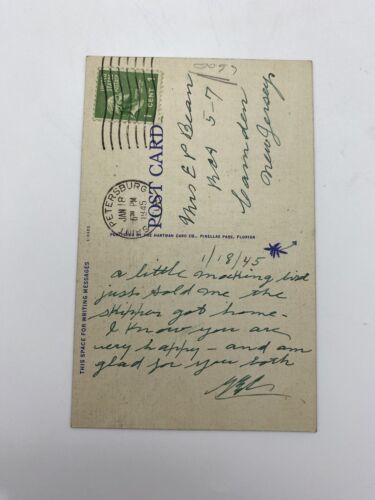 1 CENT 1
SAINT PETERSBURG
JAN 18
6 PM
1945
POST CARD
Mrs E P Bean
RCA 5-7
Camden
New Jersey
THE HARTMAN CARD CO., PINELLAS PARK, FLORIDA
THIS SPACE FOR WRITING MESSAGES
1/18/45
a little mocking bird
just told me the
skipper got home -
I know you are
very happy - and am
glad for you both